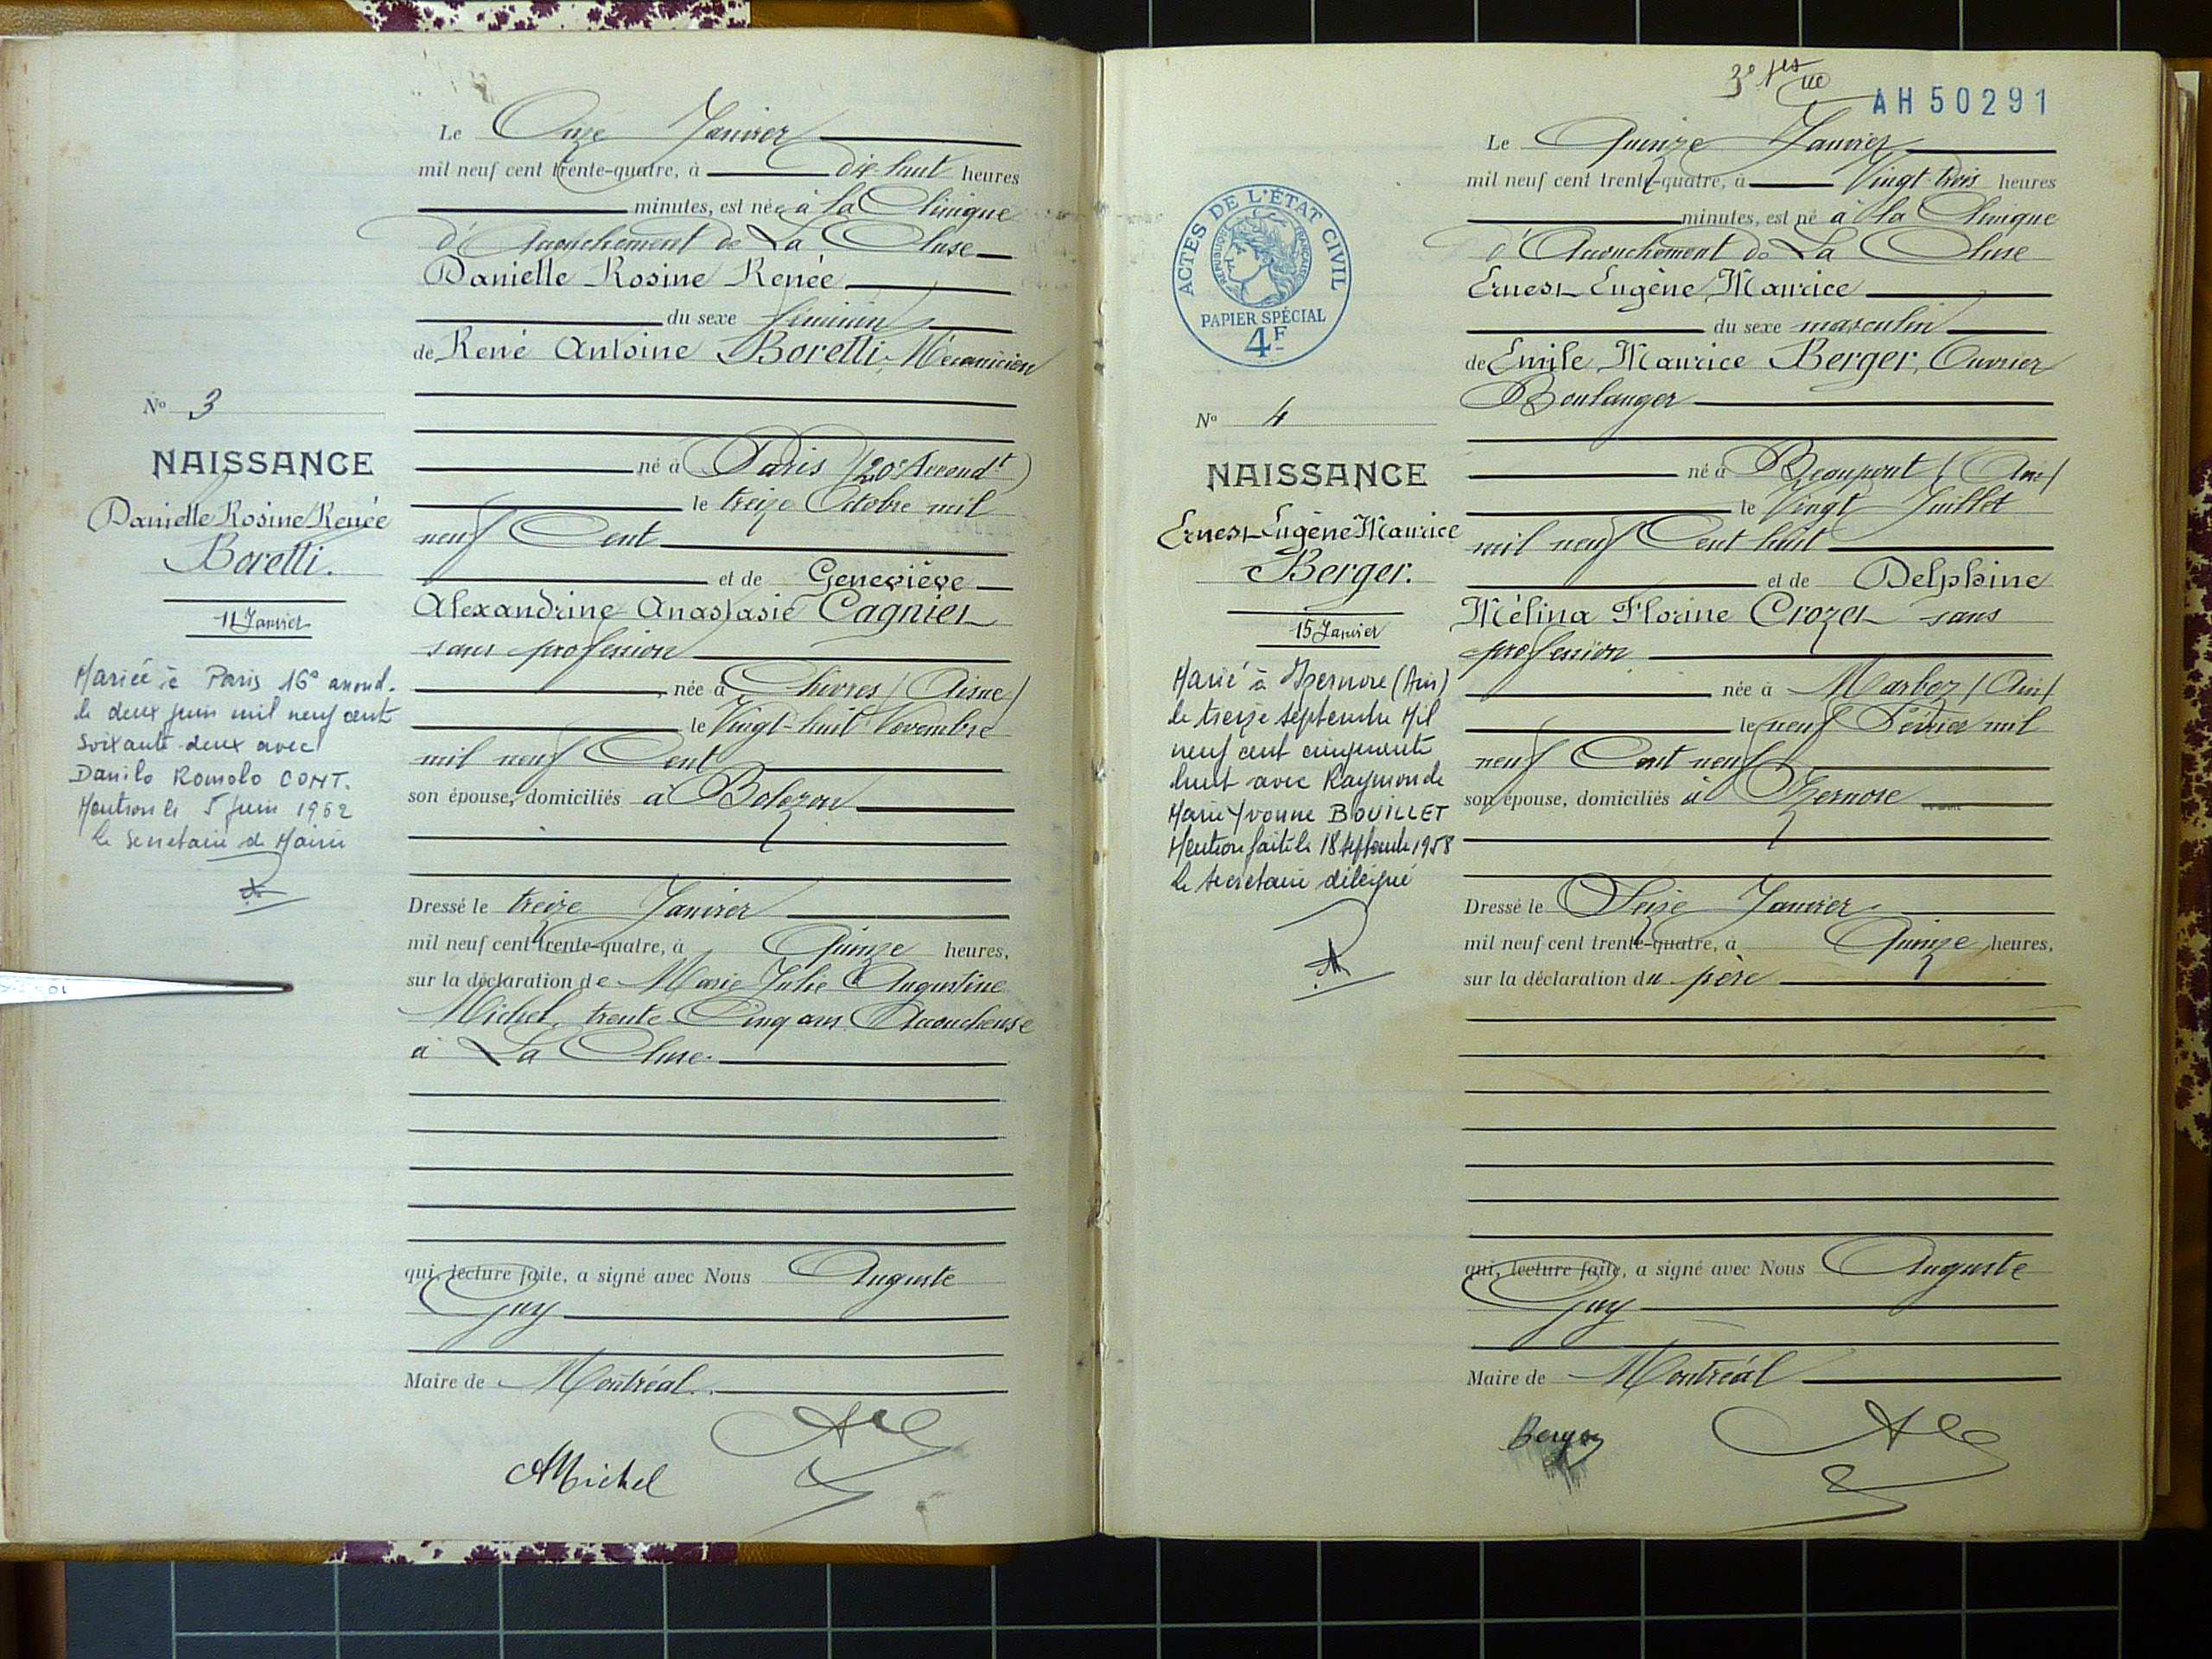 Le Onze Janvier
mil neuf cent trente-quatre, à dix-huit heures
minutes, est née à la Clinique
d'Accouchement de La Cluse
Danielle Rosine Renée
du sexe féminin
de René Antoine Boretti, Mécanicien
né à Paris (20e Arrondt)
le treize Octobre mil
neuf Cent
et de Geneviève
Alexandrine Anastasie Cagniet
sans profession
née à Chivres (Aisne)
le Vingt-huit Novembre
mil neuf Cent
son épouse, domiciliés à Bolozon
Dressé le treize Janvier
mil neuf cent trente-quatre, à Quinze heures,
sur la déclaration de Marie Julie Augustine
Michel, trente-Cinq ans, Accoucheuse
à La Cluse.
qui, lecture faite, a signé avec Nous Auguste
Guy
Maire de Montréal.
AMichel
No 3
NAISSANCE
Danielle Rosine Renée
Boretti.
11 Janvier
Mariée à Paris 16e arrond.
le deux juin mil neuf cent
soixante-deux avec
Danilo Romolo CONT.
Mention le 5 juin 1962
Le Secrétaire de Mairie
AH50291
ACTES DE L'ÉTAT CIVIL
RÉPUBLIQUE FRANÇAISE
PAPIER SPÉCIAL
4F
No 4
NAISSANCE
Ernest Eugène Maurice
Berger.
15 Janvier
Marié à Izernore (Ain)
le treize septembre Mil
neuf cent cinquante
huit avec Raymonde
Marie Yvonne BOUILLET
Mention faite le 18 septembre 1958
Le secrétaire délégué
Le Quinze Janvier
mil neuf cent trente-quatre, à Vingt-trois heures
minutes, est né à la Clinique
d'Accouchement de La Cluse
Ernest Eugène Maurice
du sexe masculin
de Emile Maurice Berger, Ouvrier
Boulanger
né à Beaupont (Ain)
le Vingt Juillet
mil neuf Cent huit
et de Delphine
Mélina Florine Crozet sans
profession
née à Marboz (Ain)
le neuf Février mil
neuf Cent neuf
son épouse, domiciliés à Izernore
Dressé le Seize Janvier
mil neuf cent trente-quatre, à Quinze heures,
sur la déclaration du père
qui, lecture faite, a signé avec Nous Auguste
Guy
Maire de Montréal
Berger